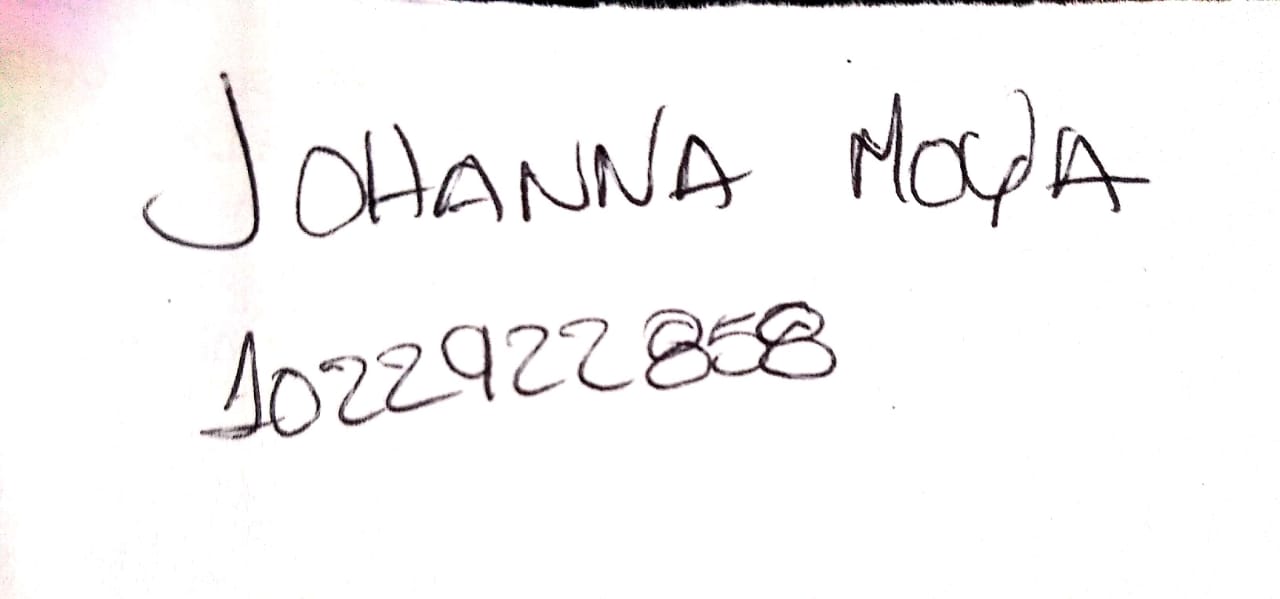 JOHANNA MOYA
1022922858